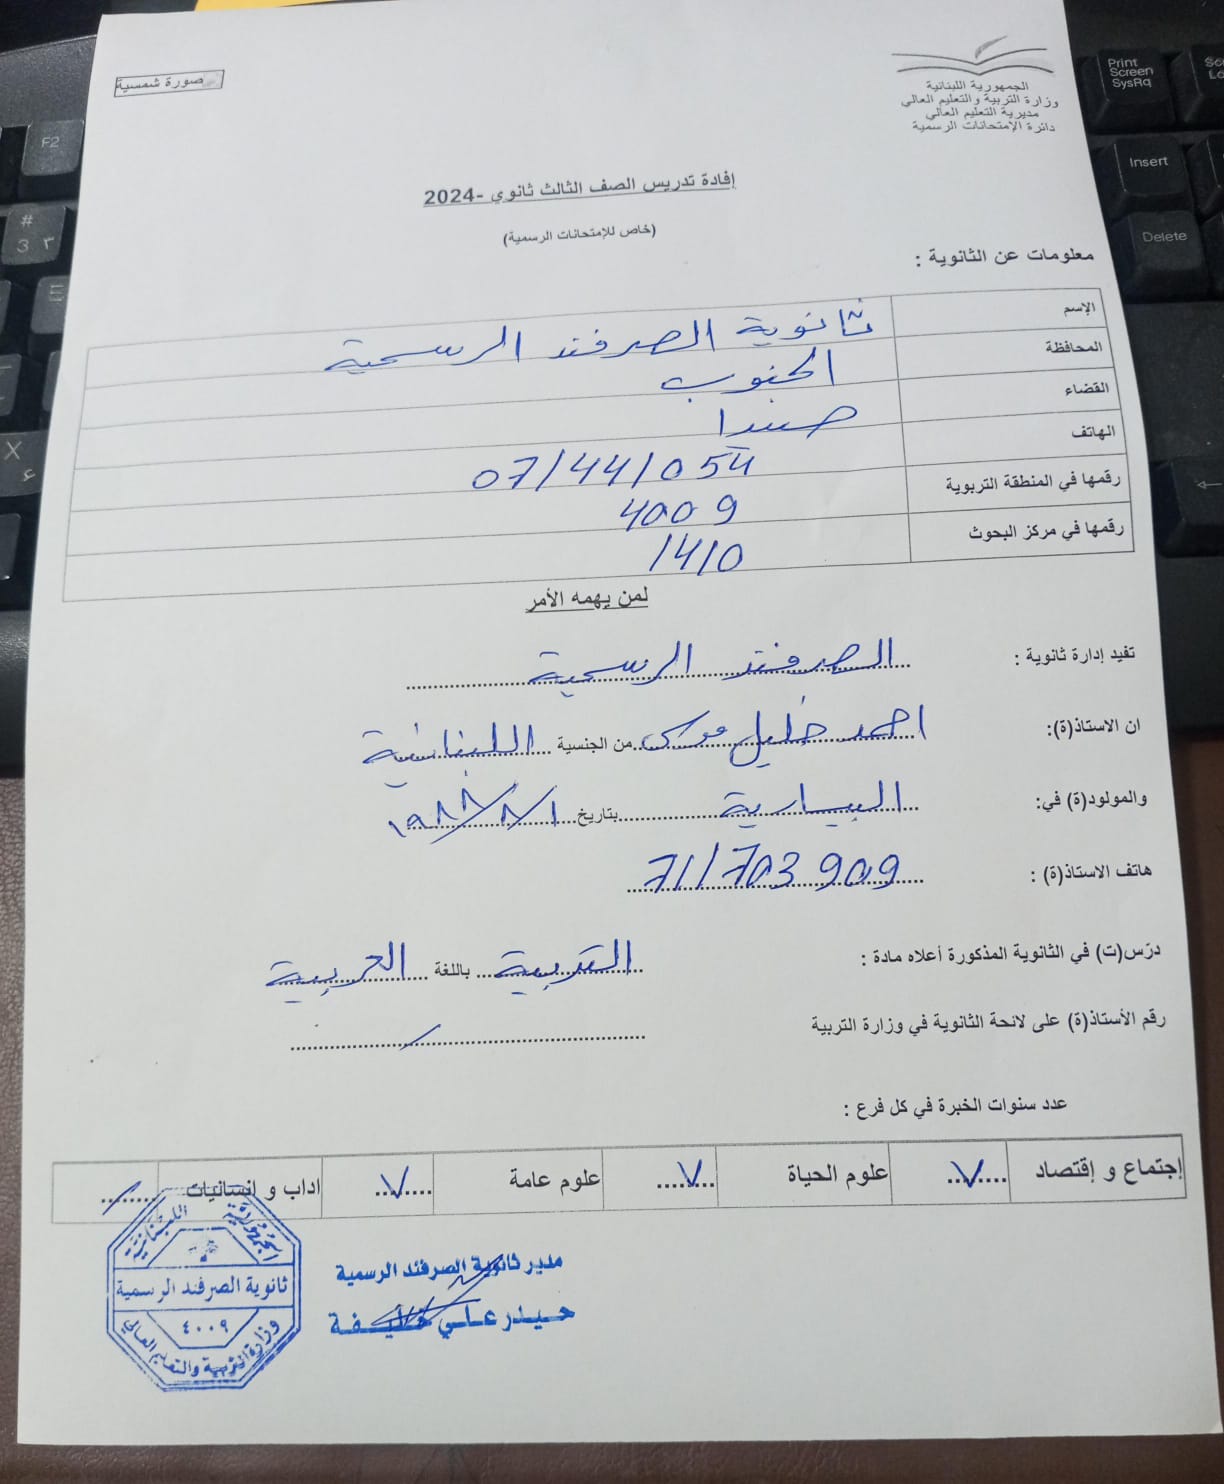 صورة شمسية
الجمهورية اللبنانية
وزارة التربية والتعليم العالي
مديرية التعليم العالي
دائرة الإمتحانات الرسمية
إفادة تدريس الصف الثالث ثانوي -2024
(خاص للإمتحانات الرسمية)
معلومات عن الثانوية :
الإسم ثانوية الصرفند الرسمية
المحافظة الجنوب
القضاء صيدا
الهاتف 07/44/054
رقمها في المنطقة التربوية 4009
رقمها في مركز البحوث 1410
لمن يهمه الأمر
تفيد إدارة ثانوية : الصرفند الرسمية
ان الاستاذ(ة): احمد خليل موسى من الجنسية اللبنانية
والمولود(ة) في: البيسارية بتاريخ ١/٨/١٩٨٨
هاتف الاستاذ(ة) : 71/703909
درّس(ت) في الثانوية المذكورة أعلاه مادة : التربية باللغة العربية
رقم الأستاذ(ة) على لائحة الثانوية في وزارة التربية /
عدد سنوات الخبرة في كل فرع :
إجتماع و إقتصاد ٧ علوم الحياة ٧ علوم عامة ٧ اداب و انسانيات /
الجمهورية اللبنانية
ثانوية الصرفند الرسمية
٤٠٠٩
وزارة التربية والتعليم العالي
مدير ثانوية الصرفند الرسمية
حيدر علي خليفة